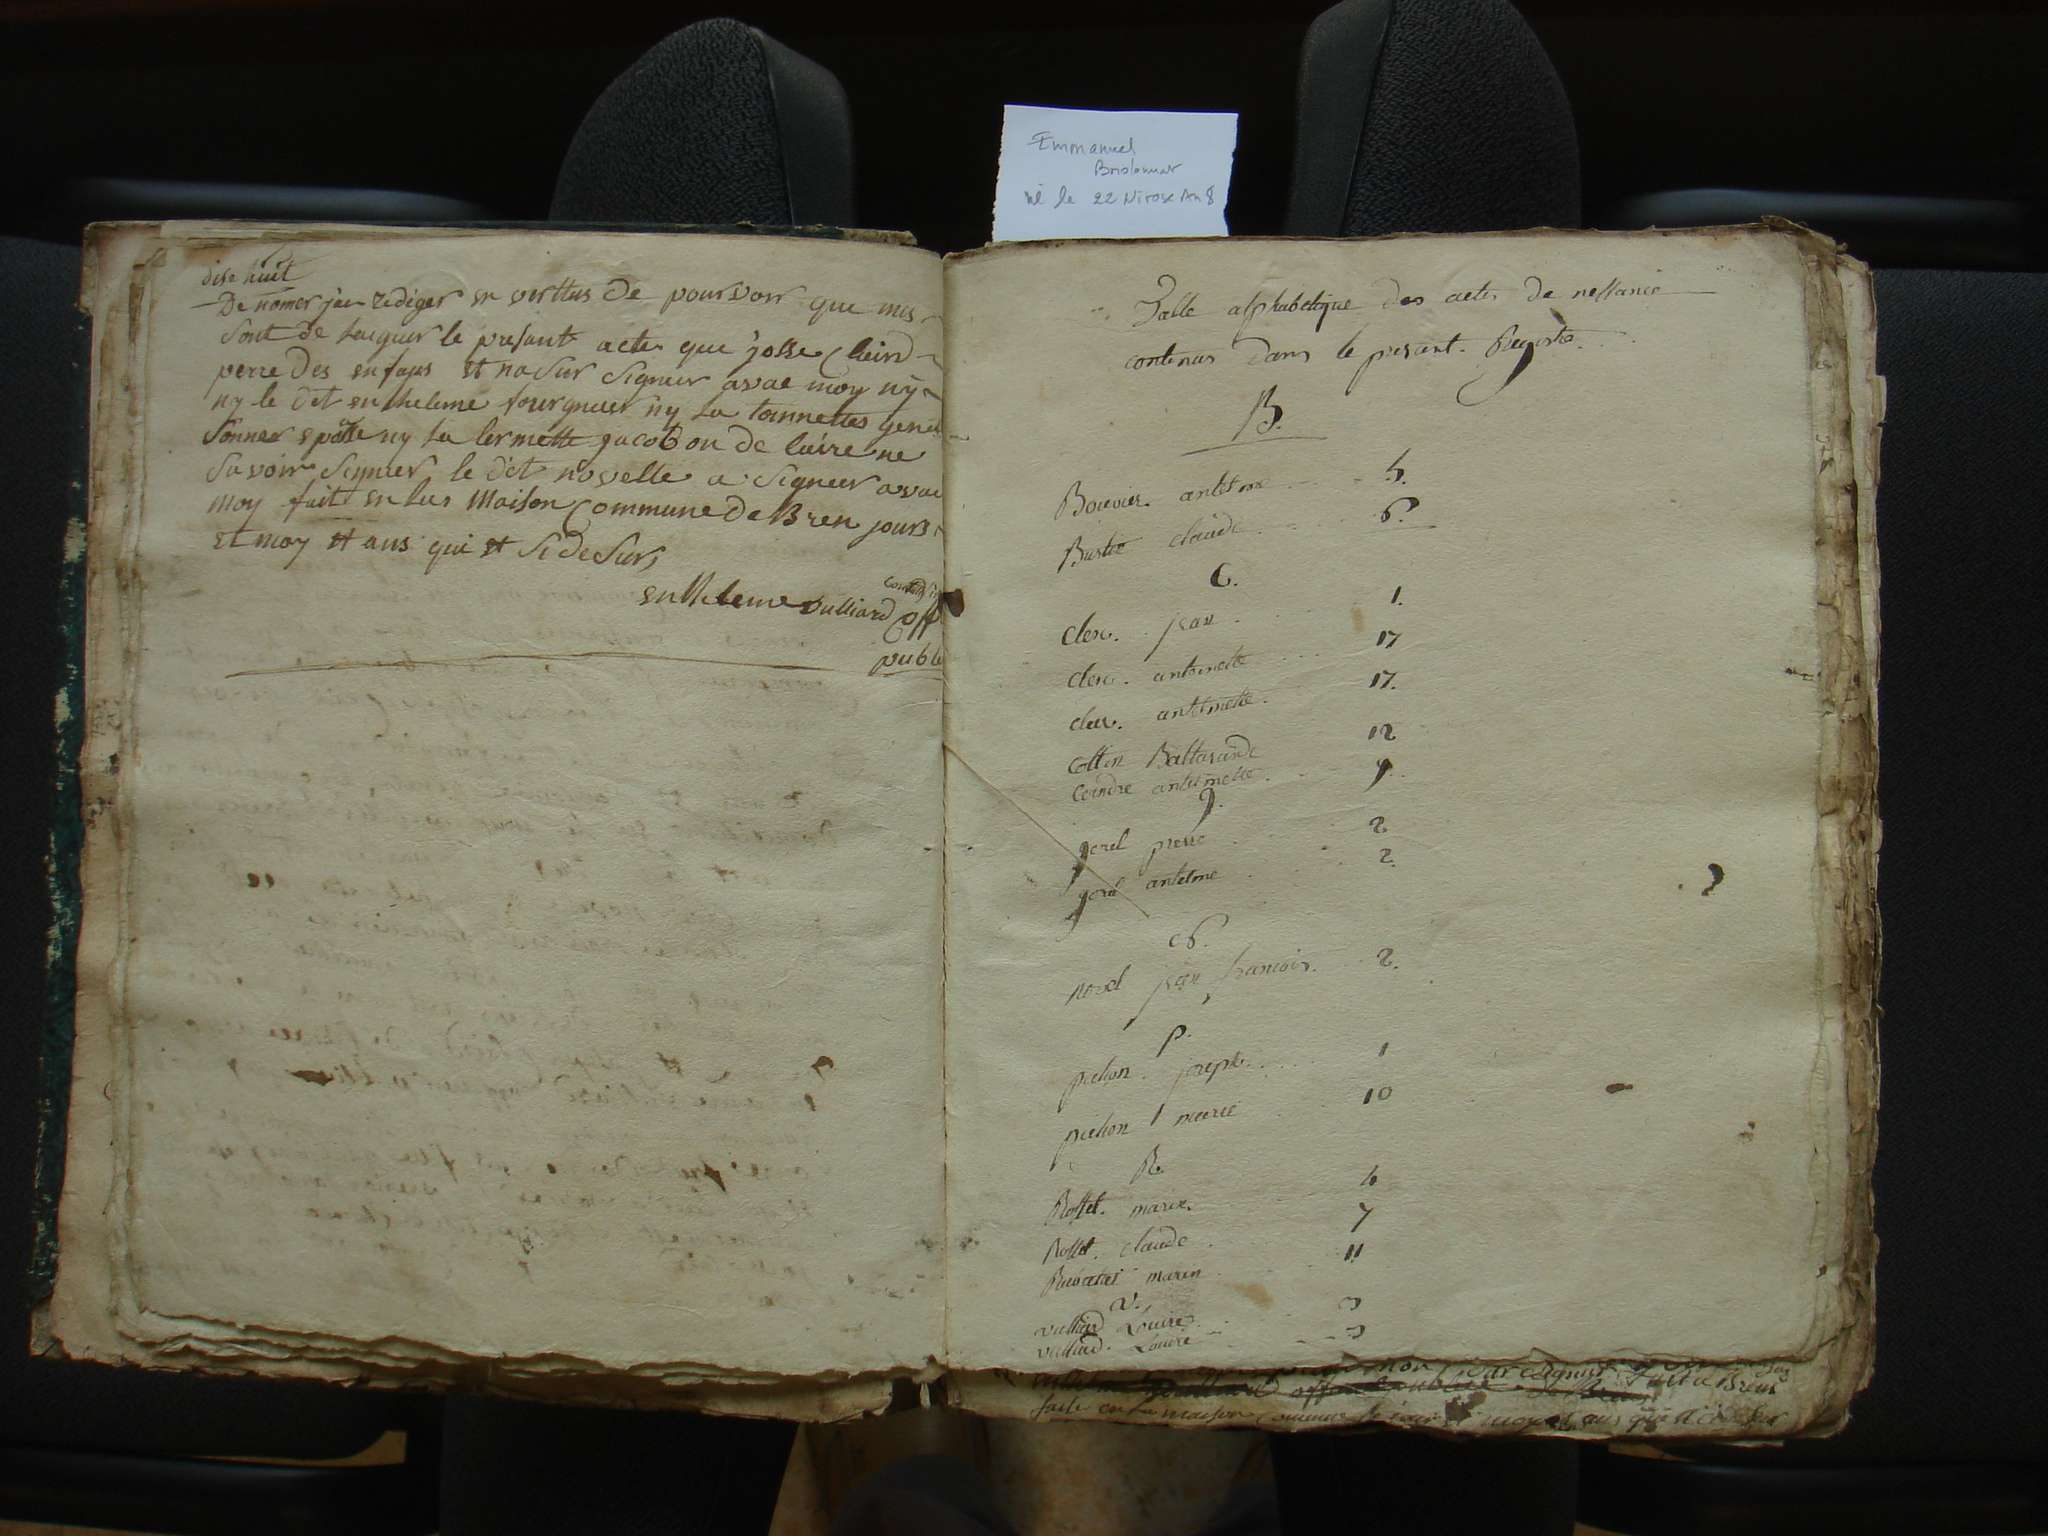 Emmanuel
né le 22 Nivose An 8
dise huit
De nomer j'ai rediger en verttus de pourvoir que mes
sont de lacguer le presant acte que josse Claird
perre des enfans et na sur signeer avae moy ny
ny le dit enthelme fourgnier ny la toinnettes genel
sonnee ny la lermette jacob on de luire ne
savoir signier le dit novelle a signeer avae
moy fait en lus Maison Commune de Bren jours
et moy et ans qui et si de sur
entheleme vulliard off
publ
Table alphabetique des actes de nessance
contenus dans le present Registre
B.
Bouvier antelme 5.
Burtin claude 6.
C.
Clerc jean 1.
Clerc antoinette 17
Clerc antelmette 17.
Collin Baltasarde 12
Coindre antelmette 9
g.
gorel pierre 2
gorel antelme 2.
N.
norel jean francois 2.
P.
pichon joseph 1
pichon marie 10
R
Rosset marie 4
Rosset claude 7
Rubatat marin 11
V.
vulliard Louise 3
vulliard Louise 3
faite en la maison commune